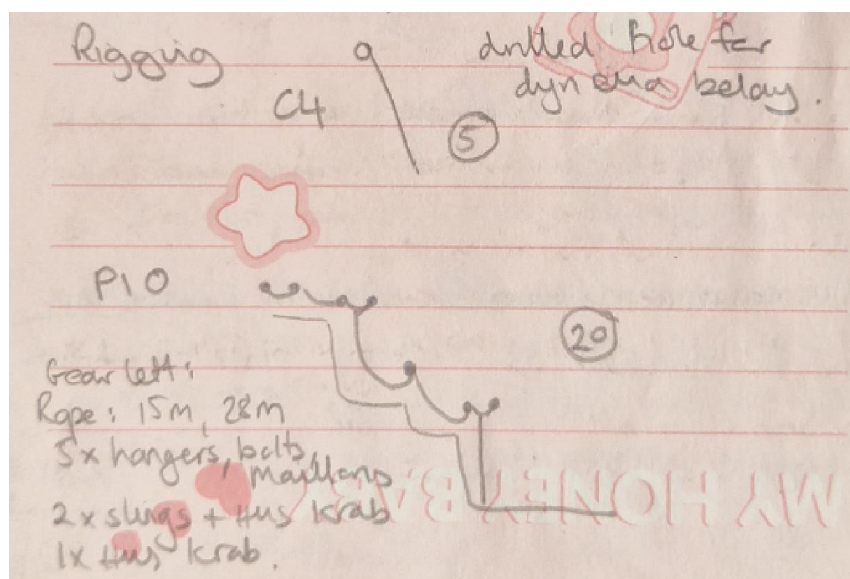 Rigging
drilled hole for
dynema belay.
C4
5
P10
20
Gear left:
Rope: 15m, 28m
5x hangers, bolts,
maillons
2x slings + Hms krab
1x Hms krab.
MY HONEY BABY